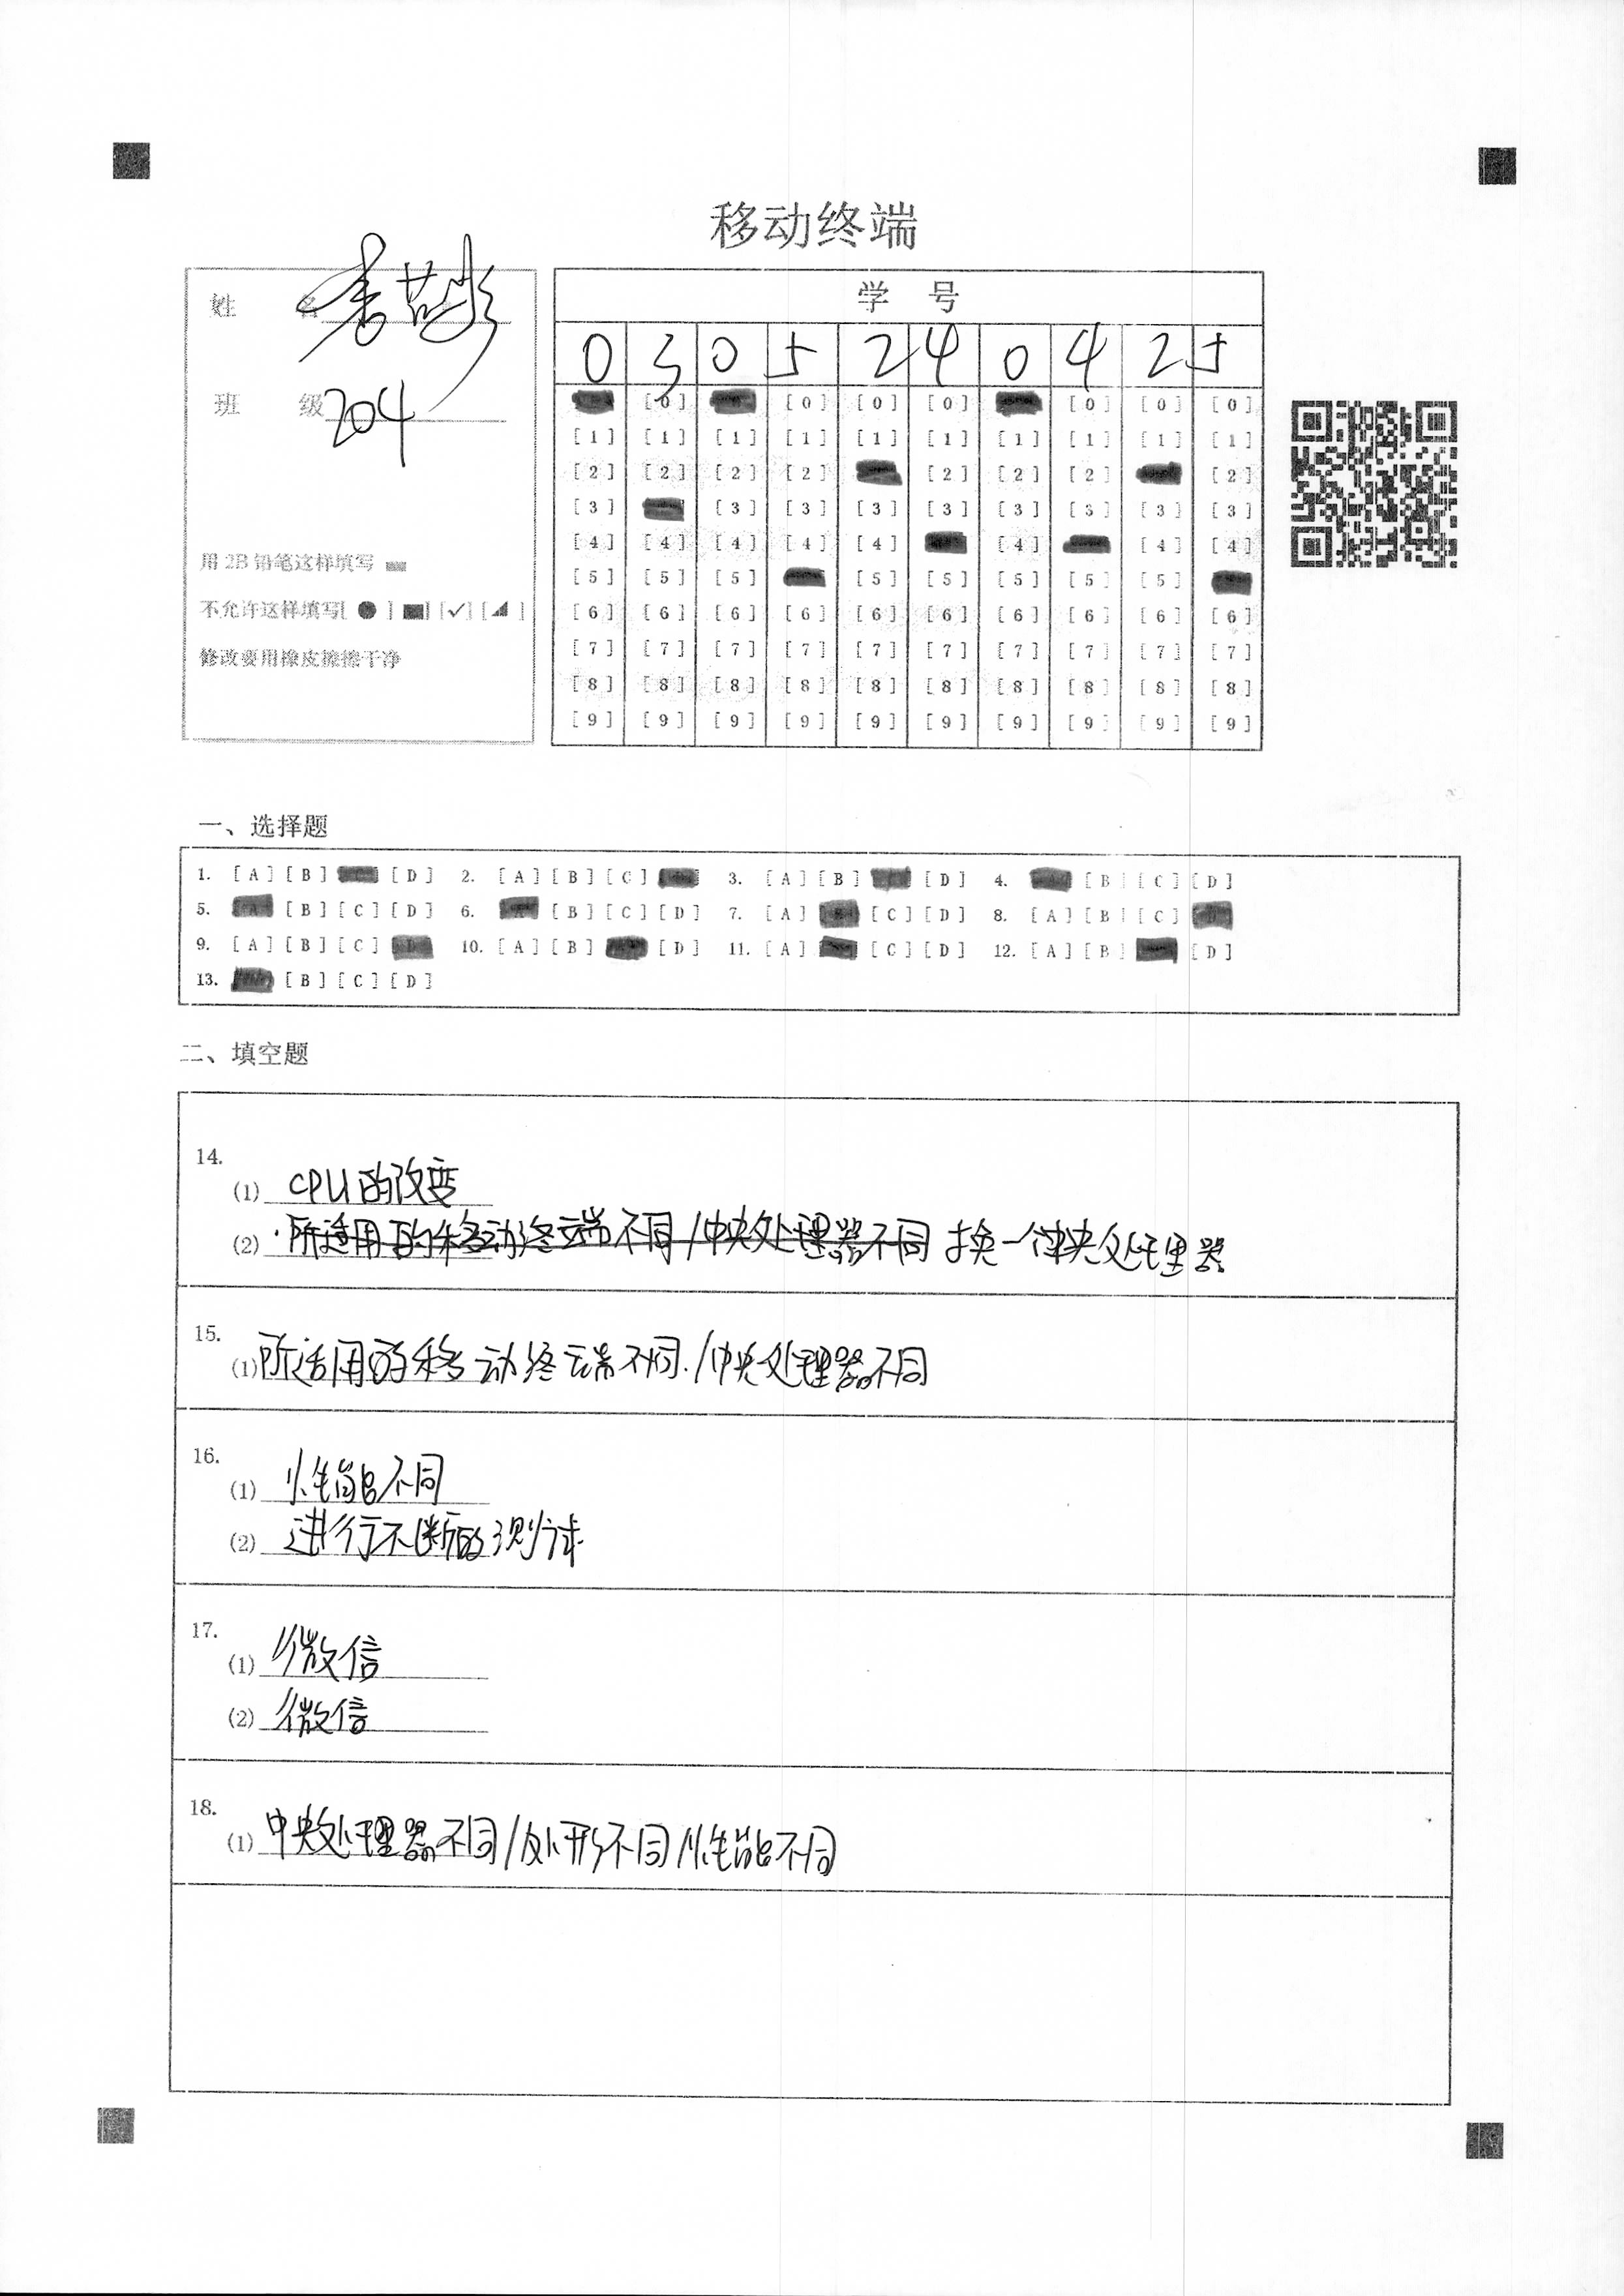 移动终端
姓 名
班 级 204
用 2B 铅笔这样填写
不允许这样填写[ ● ] [■] [✓] [◢ ]
修改要用橡皮擦擦干净
学 号
0 3 0 5 2 4 0 4 2 5
[0] [0] [0] [0] [0] [0]
[1] [1] [1] [1] [1] [1] [1] [1] [1] [1]
[2] [2] [2] [2] [2] [2] [2] [2]
[3] [3] [3] [3] [3] [3] [3] [3] [3]
[4] [4] [4] [4] [4] [4] [4] [4]
[5] [5] [5] [5] [5] [5] [5] [5]
[6] [6] [6] [6] [6] [6] [6] [6] [6] [6]
[7] [7] [7] [7] [7] [7] [7] [7] [7] [7]
[8] [8] [8] [8] [8] [8] [8] [8] [8] [8]
[9] [9] [9] [9] [9] [9] [9] [9] [9] [9]
一、选择题
1. [A] [B] [D] 2. [A] [B] [C] 3. [A] [B] [D] 4. [B] [C] [D]
5. [B] [C] [D] 6. [B] [C] [D] 7. [A] [C] [D] 8. [A] [B] [C]
9. [A] [B] [C] 10. [A] [B] [D] 11. [A] [C] [D] 12. [A] [B] [D]
13. [B] [C] [D]
二、填空题
14.
(1) CPU的改变
(2) 所适用的移动终端不同/中央处理器不同 换一个中央处理器
15.
(1) 所适用的移动终端不同./中央处理器不同
16.
(1) 性能不同
(2) 进行不断的测试
17.
(1) 微信
(2) 微信
18.
(1) 中央处理器不同/外形不同/性能不同